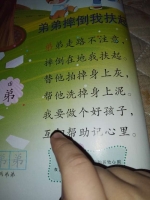 弟弟摔倒我扶起
弟弟走路不注意,
摔倒在地我扶起。
替他拍掉身上灰,
帮他洗掉身上泥。
我要做个好孩子,
互相帮助记心里。
弟